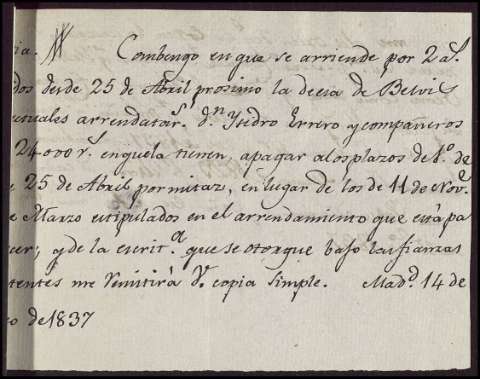 ia. Combengo en que se arriende por 2 a.s
dos desde 25 de Abril procsimo la deesa de Belvis
ctuales arrendatar.s d.n Ysidro Errero y compañeros
24000 r.s en que la tienen, apagar alos plazos de 1.o de
e 25 de Abril por mitaz, en lugar de los de 11 de Nov.e
e Marzo estipulados en el arrendamiento que está pa
cer; y de la escrit.a que se otorgue bajo las fianzas
tentes me remitirá V. copia simple. Mad.d 14 de
o de 1837